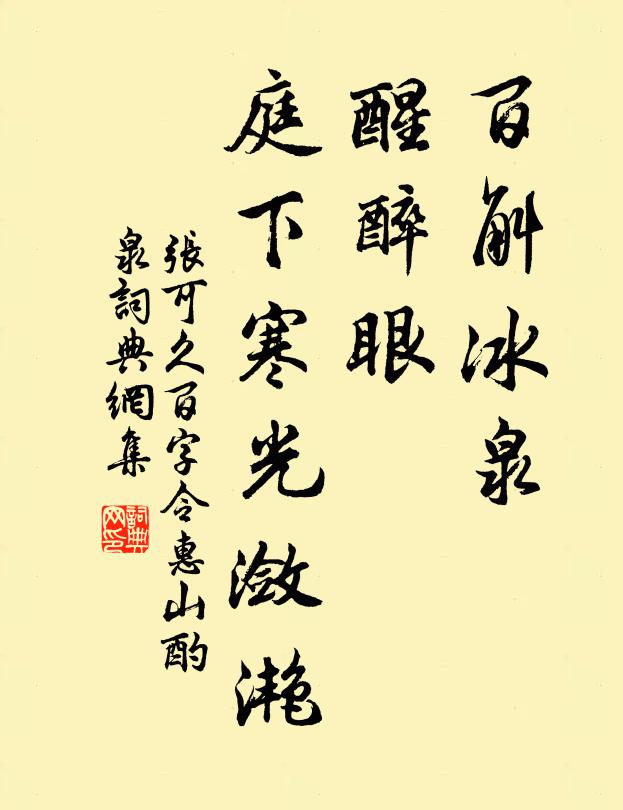 百斛冰泉
醒醉眼
庭下寒光瀲灩
張可久百字令惠山酌
泉詞典網集
詞典
网印